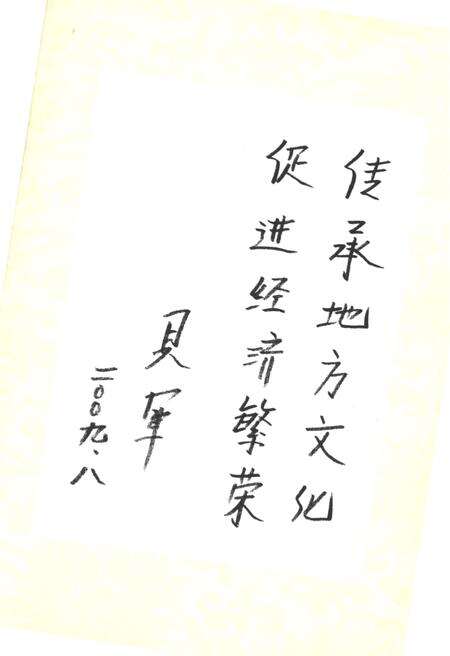 传承地方文化
促进经济繁荣
贝军
二〇〇九.八